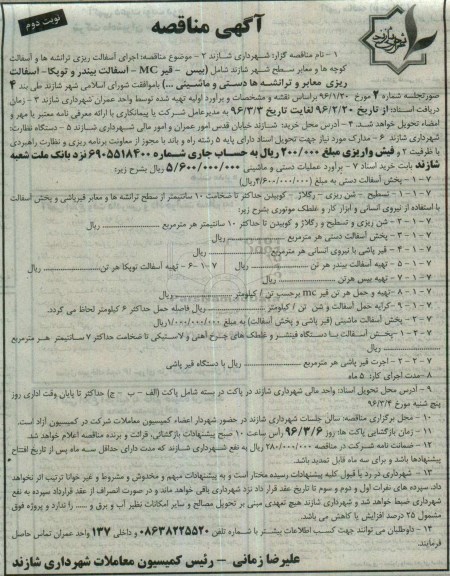 نوبت دوم
آگهی مناقصه
۱ – نام مناقصه گزار: شهرداری شازند ۲ – موضوع مناقصه: اجرای آسفالت ریزی ترانشه ها و آسفالت
کوچه ها و معابر سطح شهر شازند شامل (بیس – قیر MC – آسفالت بیندر و توپکا – آسفالت
ریزی معابر و ترانشه ها دستی و ماشینی ...) باموافقت شورای اسلامی شهر شازند طی بند ۴
صورتجلسه شماره ۲ مورخ ۹۶/۱/۲۰ براساس نقشه و مشخصات و برآورد اولیه تهیه شده توسط واحد عمران شهرداری شازند ۳ – زمان
دریافت اسناد: از تاریخ ۹۶/۲/۲۰ لغایت تاریخ ۹۶/۳/۳ به مدیرعامل شرکت یا پیمانکاری با ارائه معرفی نامه معتبر با مهر و
امضاء تحویل خواهد شد. ۴ – آدرس محل خرید: شازند خیابان قدس امور عمران و امور مالی شهرداری شازند ۵ – دستگاه نظارت:
شهرداری شازند ۶ – مدارک مورد نیاز جهت تحویل اسناد دارای پایه ۵ رشته راه و باند با مجوز از معاونت برنامه ریزی و نظارت راهبردی
با ظرفیت ۲ و فیش واریزی مبلغ ۲۰۰/۰۰۰ ریال به حساب جاری شماره ۶۹۰۵۵۱۸۴۰۰ نزد بانک ملت شعبه
شازند بابت خرید اسناد ۷ – برآورد عملیات دستی و ماشینی ۵/۶۰۰/۰۰۰/۰۰۰ ریال بشرح زیر:
۷ – ۱ – پخش آسفالت دستی به مبلغ (۴/۶۰۰/۰۰۰/۰۰۰ریال)
۷ – ۱ – ۱ – تسطیح – شن ریزی – رگلاژ – کوبیدن حداکثر تا ضخامت ۱۰ سانتیمتر از سطح ترانشه ها و معابر قیرپاشی و پخش آسفالت
با استفاده از نیروی انسانی و ابزار کار و غلطک موتوری بشرح زیر:
۷ – ۱ – ۲ – شن ریزی و تسطیح و رگلاژ و کوبیدن تا حداکثر ۱۰ سانتیمتر هر مترمربع ........ ریال
۷ – ۱ – ۳ – پخش آسفالت دستی هر مترمربع ........ ریال
۷ – ۱ – ۴ – قیر پاشی با نیروی انسانی هر مترمربع ........ ریال
۷ – ۱ – ۵ – تهیه آسفالت بیندر هر تن ........ ریال ۷ – ۱ – ۶ – تهیه آسفالت توپکا هر تن ........ ریال
۷ – ۱ – ۷ – تهیه بیس هرتن ........ ریال
۷ – ۱ – ۸ – تهیه و حمل هر تن قیر mc برحسب تن / کیلومتر ........ ریال
۷ – ۱ – ۹ – کرایه حمل آسفالت و شن تن / کیلومتر ........ ریال فاصله حمل حداکثر ۶ کیلومتر لحاظ می گردد.
۷ – ۲ – پخش آسفالت ماشینی (قیر پاشی و پخش آسفالت) به مبلغ ۱/۰۰۰/۰۰۰/۰۰۰ ریال
۷ – ۲ – ۱ – پخش آسفالت با دستگاه فینشر و غلطک های چرخ آهنی و لاستیکی تا ضخامت حداکثر ۷ سانتیمتر هر مترمربع
........ ریال
۷ – ۲ – ۲ – اجرت قیر پاشی هر مترمربع ........ ریال با دستگاه قیر پاشی
۸ – مدت اجرای کار: ۵ ماه
۹ – آدرس محل تحویل اسناد: واحد مالی شهرداری شازند در پاکت در بسته شامل پاکت (الف – ب – ج) حداکثر تا پایان وقت اداری روز
پنج شنبه مورخ ۹۶/۳/۴
۱۰ – محل برگزاری مناقصه: سالن جلسات شهرداری شازند در حضور شهردار اعضاء کمیسیون معاملات شرکت در کمیسیون آزاد است.
۱۱ – زمان بازگشایی پاکت ها: روز ۹۶/۳/۶ رأس ساعت ۱۰ صبح پیشنهادات بازگشائی، قرائت و برنده مناقصه اعلام خواهد شد.
۱۲ – ضمانت نامه شرکت در مناقصه ۲۸۰/۰۰۰/۰۰۰ ریال به نفع شهرداری شازند که مدت دارای حداقل سه ماه پس از تاریخ افتتاح
پیشنهادها باشد و برای سه ماه قابل تمدید باشد.
۱۳ – شهرداری در رد یا قبول کلیه پیشنهادات رسیده مختار است و به پیشنهادات مبهم و مخدوش و مشروط و غیر خوانا ترتیب اثر نخواهد
داد، سپرده های نفرات اول و دوم و سوم تا تاریخ عقد قرار داد نزد شهرداری باقی خواهد ماند و در صورت انصراف از عقد قرارداد سپرده به نفع
شهرداری ضبط خواهد شد و شهرداری شازند هیچ تعهدی مبنی بر تحویل مصالح و سایر امکانات نظیر آب و برق و .... را ندارد و پروژه فوق
مشمول ۲۵ درصد افزایش یا کاهش می باشد.
۱۴ – داوطلبان می توانند جهت کسب اطلاعات بیشتر با شماره تلفن ۰۸۶۳۸۲۲۵۵۲۰ و داخلی ۱۳۷ واحد عمران تماس حاصل
فرمایند.
علیرضا زمانی – رئیس کمیسیون معاملات شهرداری شازند